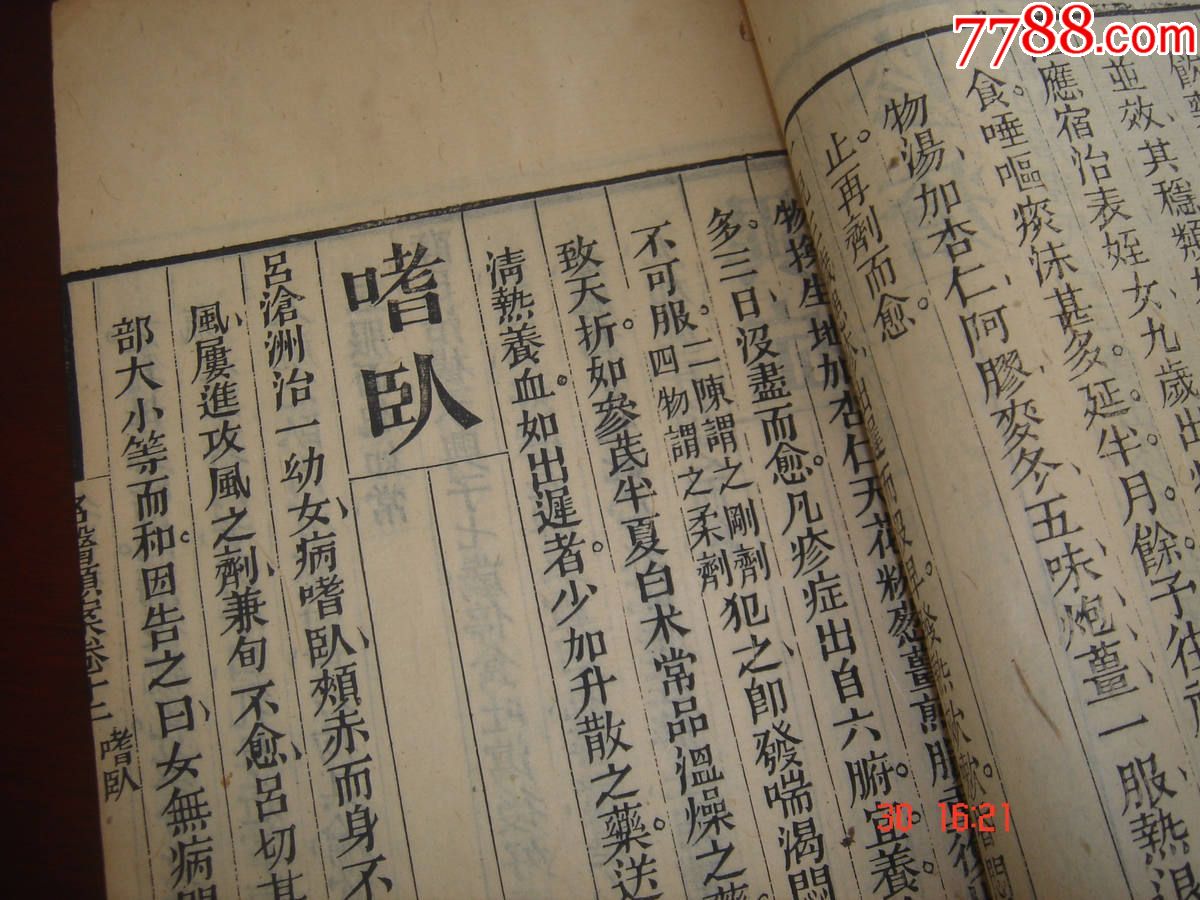 7788.com
飲
並效其穩
應宿治表姪女九歲出
食唾嘔痰沫甚多延半月。餘子往
物湯加杏仁阿膠麥冬五味炮薑一服熱退
止再劑而愈。
生地加杏仁天花粉葱薑煎服
多三日沒盡而愈凡疹症出自六腑宜養
不可服二陳謂之剛劑
四物謂之柔劑
犯之即發喘渴悶
致夭折如參芪半夏白朮常品溫燥之藥
清熱養血如出遲者少加升散之藥送
嗜臥
呂滄洲治一幼女病嗜臥頰赤而身不
風屢進攻風之劑兼旬不愈呂切其
部大小等而和因告之曰女無病
名醫類案卷十二
嗜臥
30 16:21